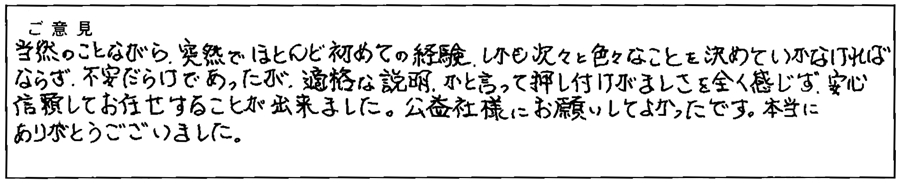 ご意見
当然のことながら、突然でほとんど初めての経験、しかも次々と色々なことを決めていかなければ
ならず、不安だらけであったが、適格な説明、かと言って押し付けがましさを全く感じず、安心
信頼してお任せすることが出来ました。公益社様にお願いしてよかったです。本当に
ありがとうございました。